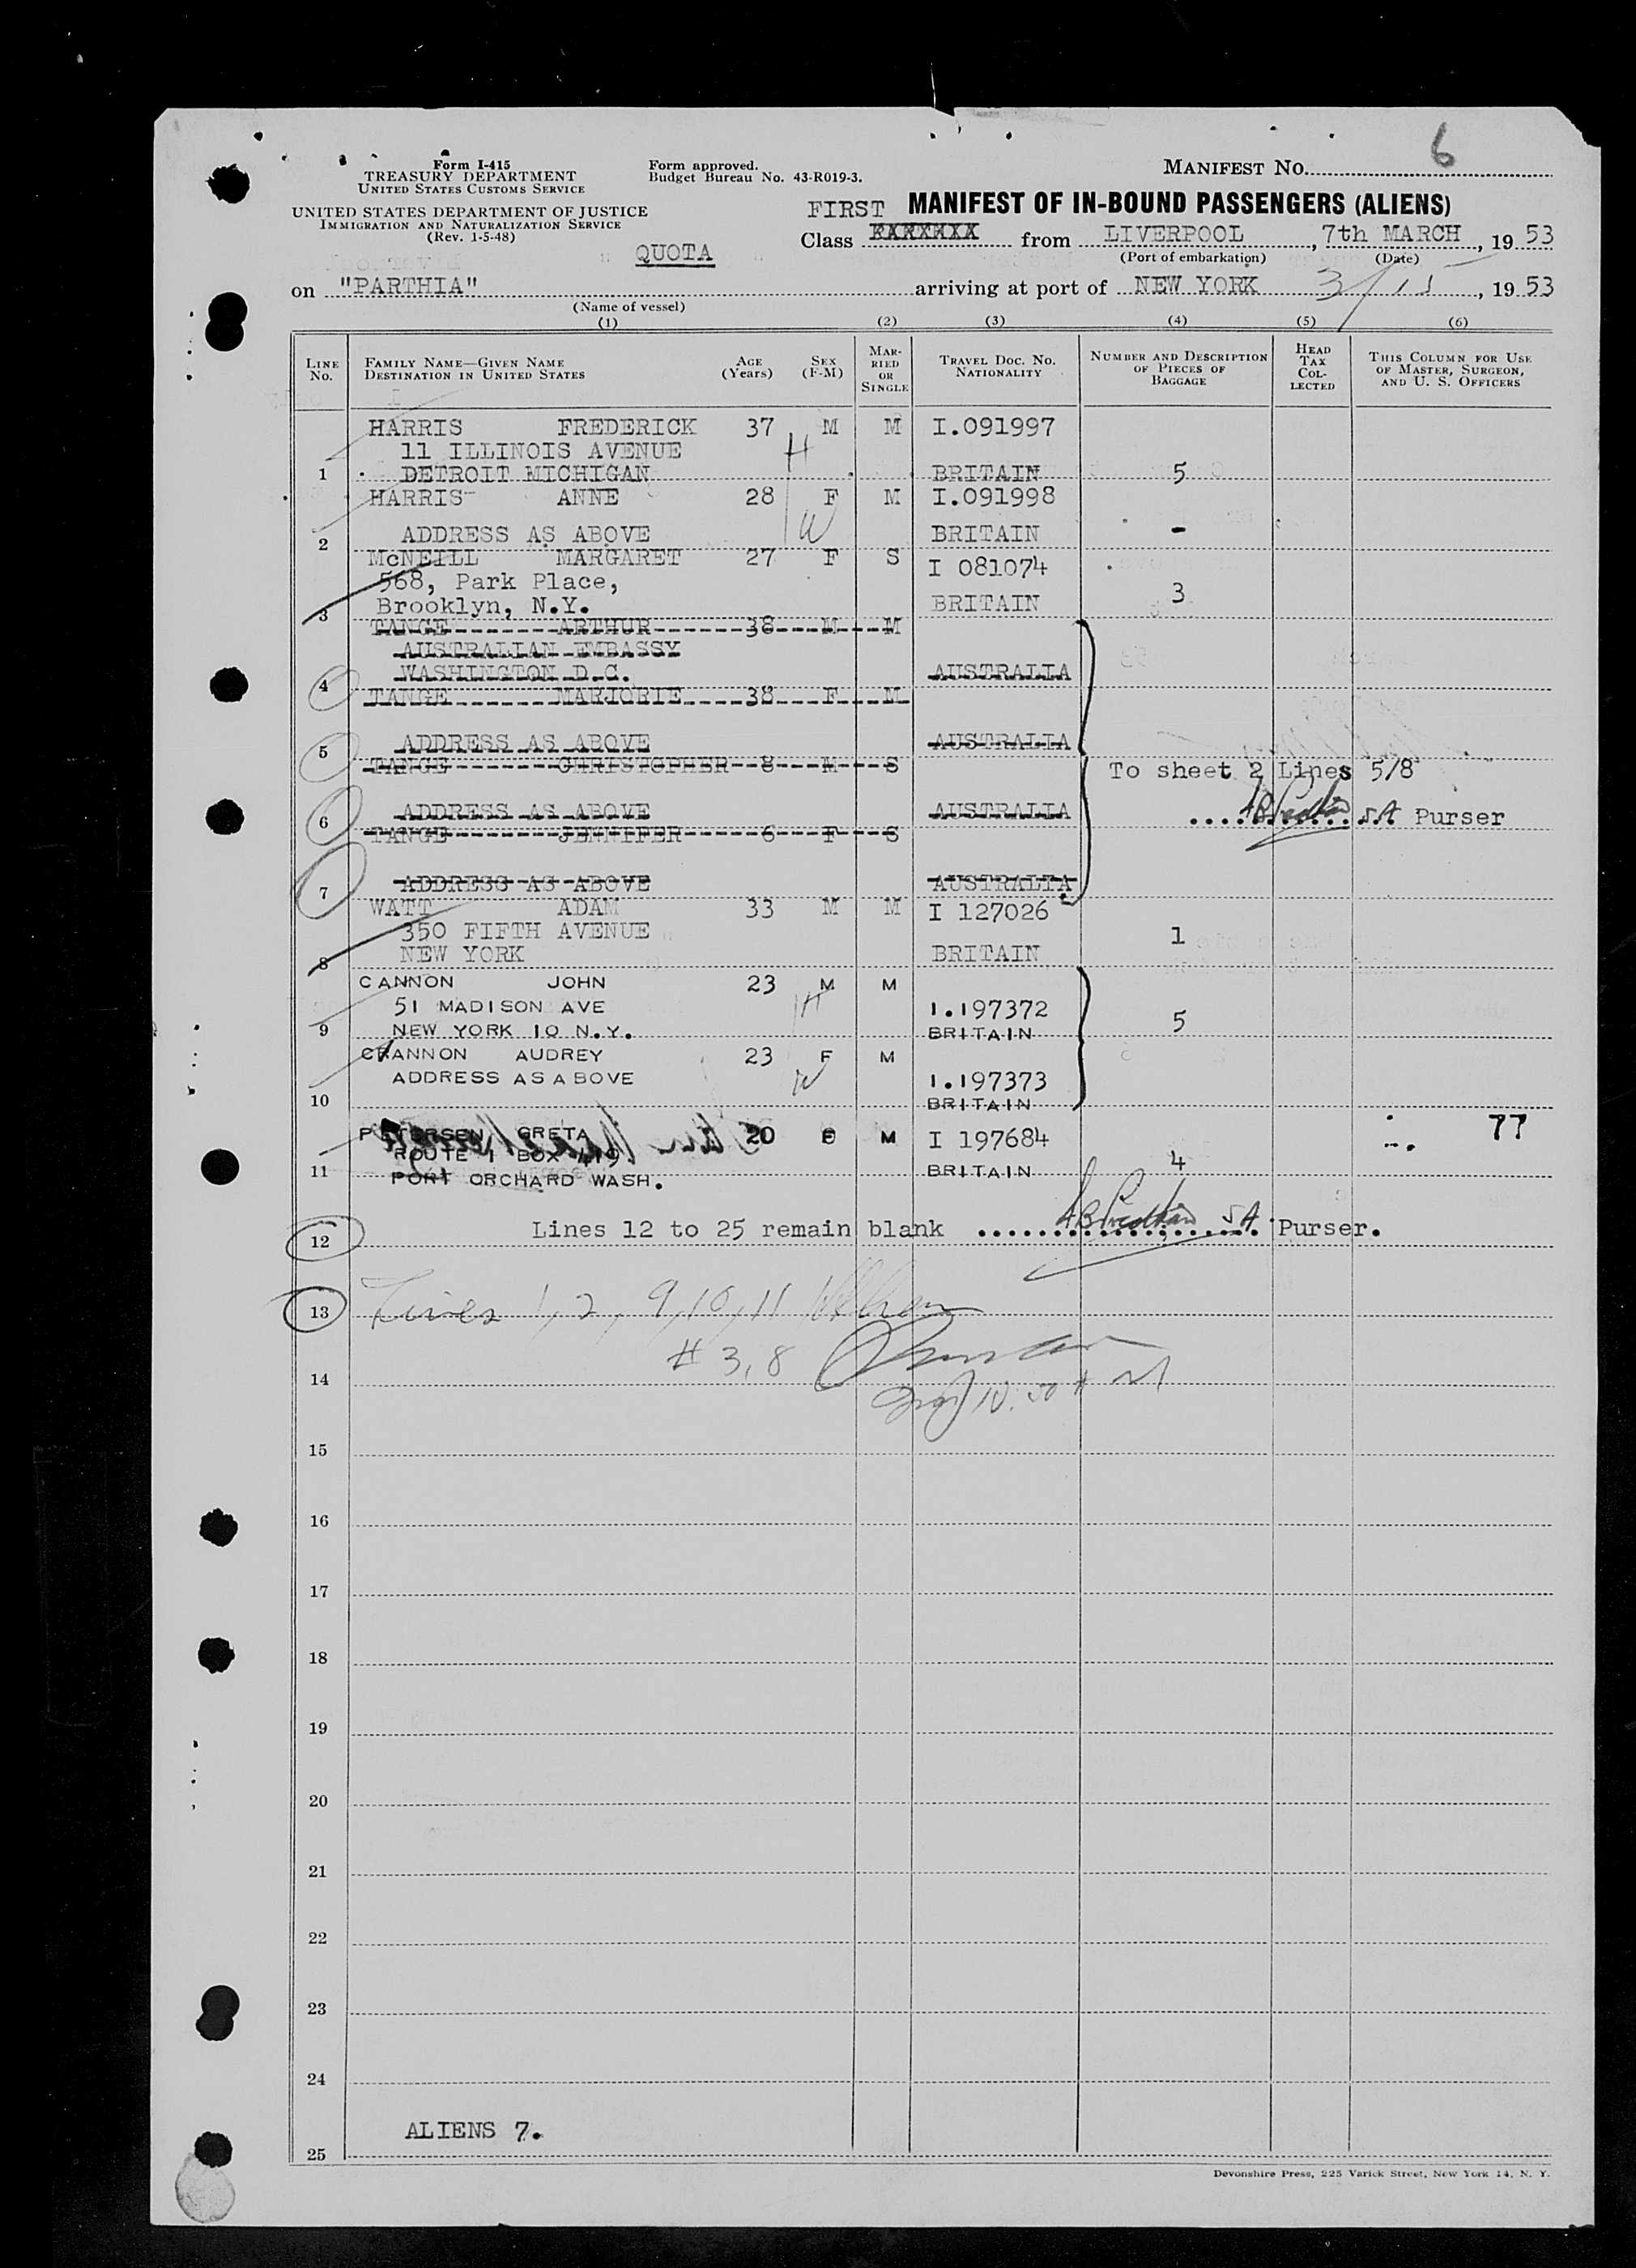 6
Form I-415
TREASURY DEPARTMENT
UNITED STATES CUSTOMS SERVICE
Form approved.
Budget Bureau No. 43-R019-3.
MANIFEST No.
UNITED STATES DEPARTMENT OF JUSTICE
IMMIGRATION AND NATURALIZATION SERVICE
(Rev. 1-5-48)
FIRST MANIFEST OF IN-BOUND PASSENGERS (ALIENS)
QUOTA
Class from LIVERPOOL, 7th MARCH, 19 53
(Port of embarkation) (Date)
on "PARTHIA" arriving at port of NEW YORK 3/15, 19 53
(Name of vessel)
(1) (2) (3) (4) (5) (6)
LINE No. FAMILY NAME—GIVEN NAME DESTINATION IN UNITED STATES AGE (Years) SEX (F-M) MARRIED OR SINGLE TRAVEL DOC. NO. NATIONALITY NUMBER AND DESCRIPTION OF PIECES OF BAGGAGE HEAD TAX COLLECTED THIS COLUMN FOR USE OF MASTER, SURGEON, AND U. S. OFFICERS
HARRIS FREDERICK 37 M M I.091997
11 ILLINOIS AVENUE H
1 DETROIT MICHIGAN BRITAIN 5
HARRIS ANNE 28 F M I.091998
W
2 ADDRESS AS ABOVE BRITAIN -
McNEILL MARGARET 27 F S I 081074
568, Park Place,
3 Brooklyn, N.Y. BRITAIN 3
TANGE ARTHUR 38 M M
AUSTRALIAN EMBASSY
4 WASHINGTON D.C. AUSTRALIA
TANGE MARJORIE 38 F M
5 ADDRESS AS ABOVE AUSTRALIA
TANGE CHRISTOPHER 8 M S To sheet 2 Lines 5/8
6 ADDRESS AS ABOVE AUSTRALIA SA Purser
TANGE JENNIFER 6 F S
7 ADDRESS AS ABOVE AUSTRALIA
WATT ADAM 33 M M I 127026
350 FIFTH AVENUE 1
8 NEW YORK BRITAIN
CANNON JOHN 23 M M
51 MADISON AVE H I.197372
9 NEW YORK 10 N.Y. BRITAIN 5
CANNON AUDREY 23 F M
ADDRESS AS ABOVE W I.197373
10 BRITAIN
PETERSEN GRETA 20 F M I 197684 77
ROUTE 1 BOX 419
11 PORT ORCHARD WASH. BRITAIN 4
12 Lines 12 to 25 remain blank SA Purser.
13 Lines 1, 2, 9, 10, 11
# 3, 8
14
15
16
17
18
19
20
21
22
23
24
ALIENS 7.
25
Devonshire Press, 225 Varick Street, New York 14, N. Y.